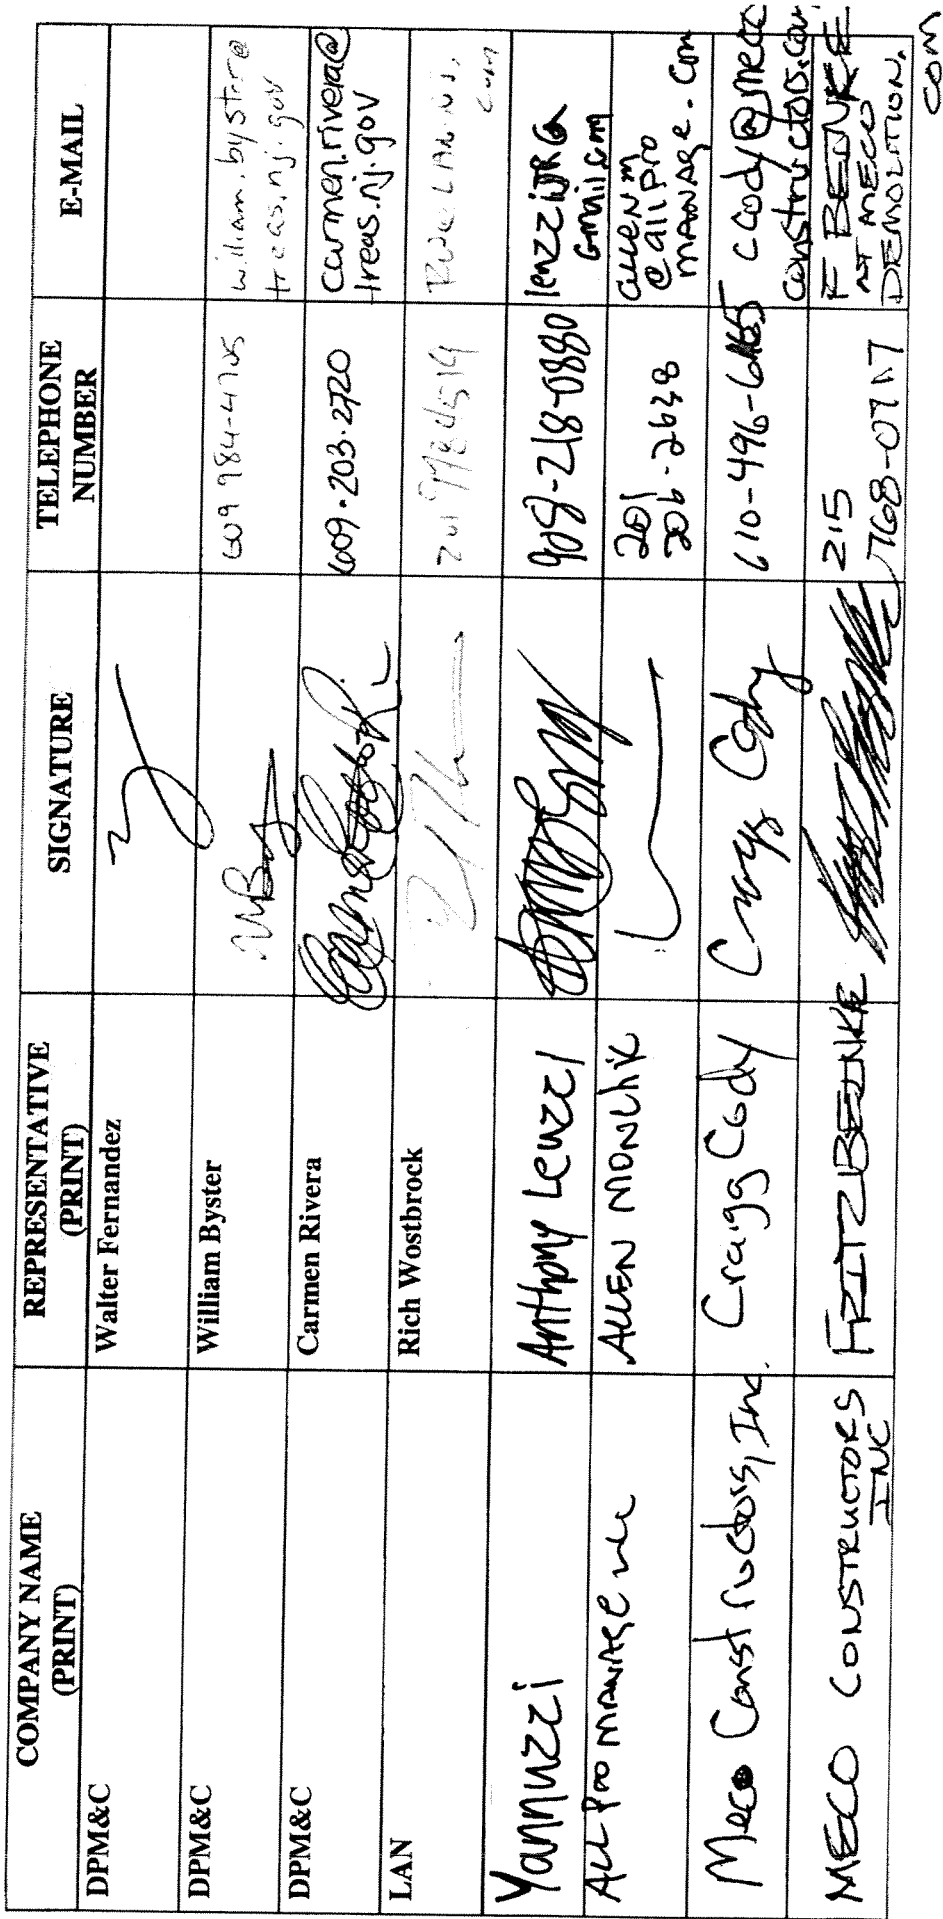 COMPANY NAME (PRINT) REPRESENTATIVE (PRINT) SIGNATURE TELEPHONE NUMBER E-MAIL
DPM&C Walter Fernandez
DPM&C William Byster 609 984-4705 william.byster@
treas.nj.gov
DPM&C Carmen Rivera 609.203.2720 carmen.rivera@
treas.nj.gov
LAN Rich Wostbrock
Yannuzzi Anthony Lenzzi 908-218-0880 lenzziJR@
Gmail.com
ALL PRO MANAGE ALLEN MONCHIK 201
206-2638 allenm
@allpro
MANAGE.com
Meco Constructors, Inc. Craigg Cody Craigg Cody 610-496-6165 ccody@meco
constructors.com
MECO CONSTRUCTORS
INC FRITZ BEINKE 215
768-0717 F BEINKE
AT MECO
DEMOLITION.
COM